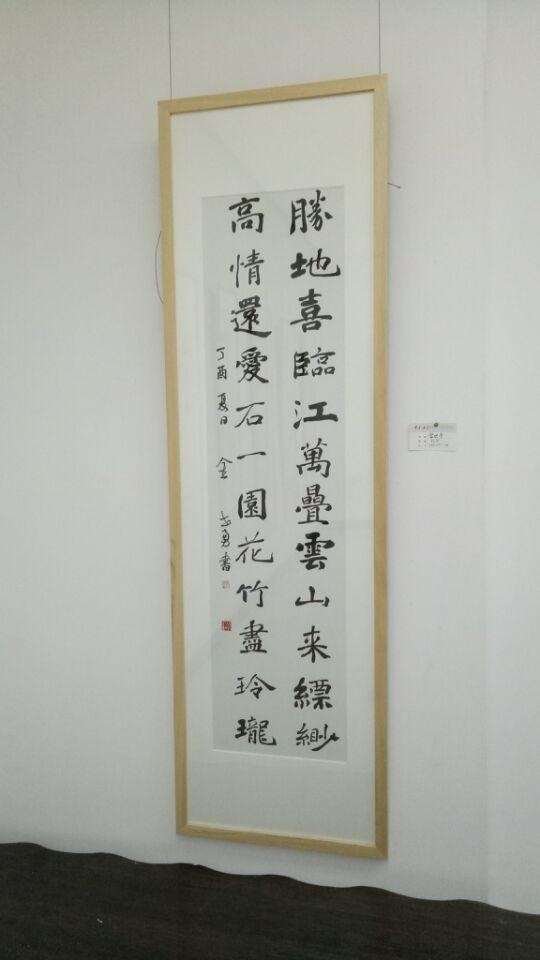 勝地喜臨江萬疊雲山来縹緲
高情還愛石一園花竹盡玲瓏
丁酉夏日 金 勇書